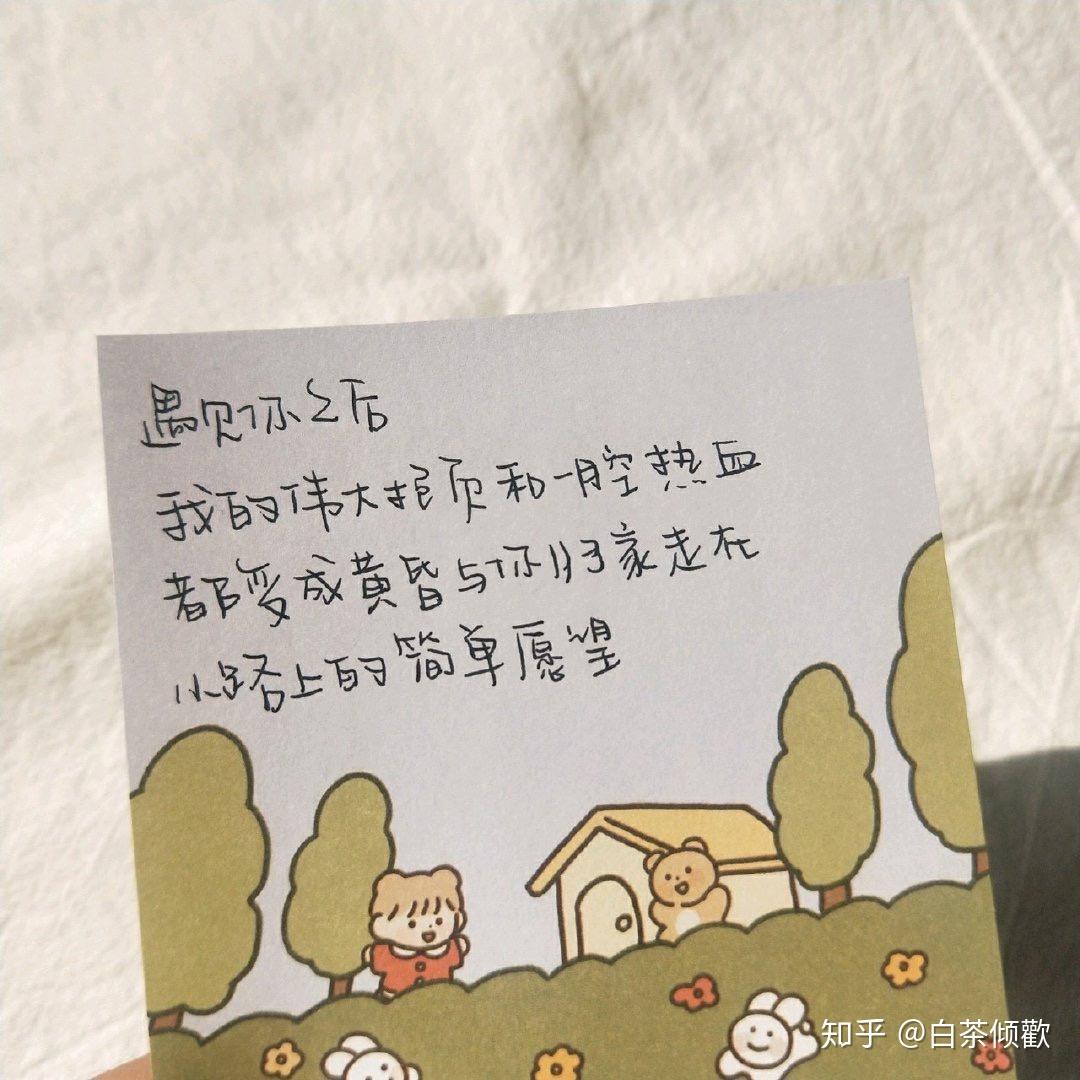 遇见你之后
我的伟大抱负和一腔热血
都变成黄昏与你归家走在
小路上的简单愿望
知乎 @白茶倾歡